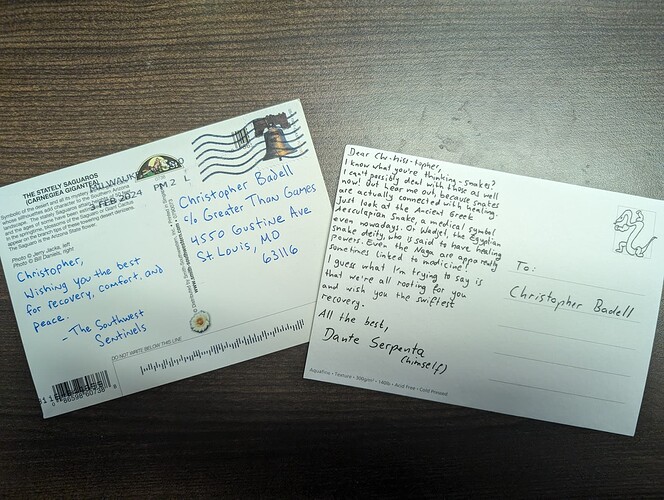 THE STATELY SAGUAROS
(CARNEGIEA GIGANTEA)
Symbolic of the desert and all its mystery
The Saguaro is the Arizona State flower.
Photo © Jerry Jacka, left
Photo © Bill Daniels, right
MILWAUKEE
FEB 2024 PM 2 L
Christopher,
Wishing you the best
for recovery, comfort, and
peace.
- The Southwest
Sentinels
Christopher Badell
c/o Greater Than Games
4550 Gustine Ave
St. Louis, MO
63116
DO NOT WRITE BELOW THIS LINE
Dear Chr-hiss-topher,
I know what you're thinking - snakes?
I can't possibly deal with those as well
now! But hear me out, because snakes
are actually connected with healing.
Just look at the Ancient Greek
Aesculapian Snake, a medical symbol
even nowadays. Or Wadjet, the Egyptian
snake deity, who is said to have healing
powers. Even the Naga are apparently
sometimes linked to medicine!
I guess what I'm trying to say is
that we're all rooting for you
and wish you the swiftest
recovery.
All the best,
Dante Serpenta
(himself)
To:
Christopher Badell
Aquafino • Texture • 300g/m² • 140lb • Acid Free • Cold Pressed